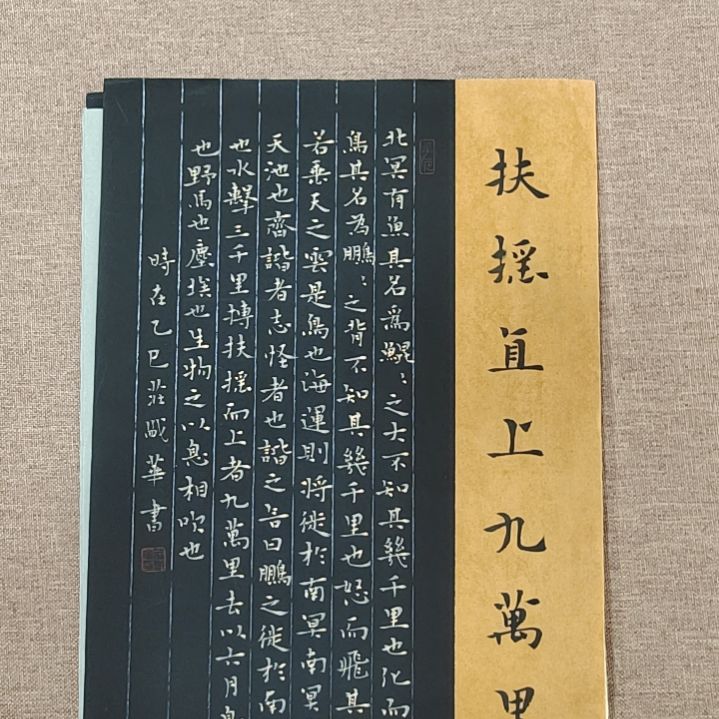 扶搖直上九萬里
北冥有魚其名為鯤：之大不知其幾千里也化而
鳥其名為鵬：之背不知其幾千里也怒而飛其
若垂天之雲是鳥也海運則將徙於南冥南冥
天池也齊諧者志怪者也諧之言曰鵬之徙於南
也水擊三千里摶扶搖而上者九萬里去以六月息
也野馬也塵埃也生物之以息相吹也
時在乙巳莊華書